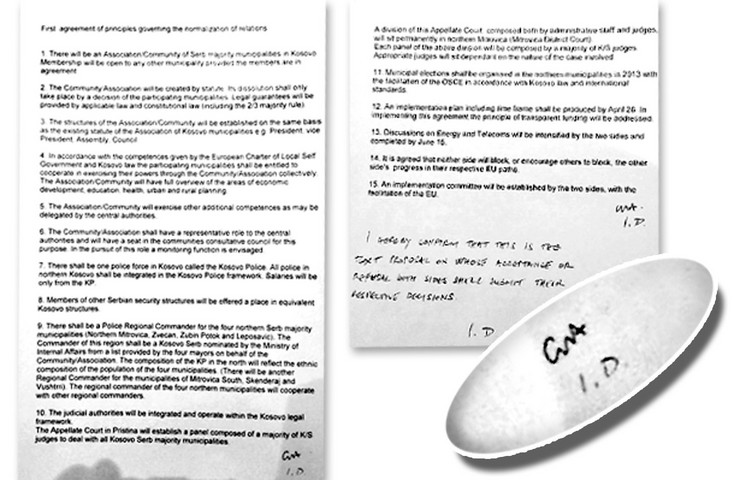 First agreement of principles governing the normalization of relations
1. There will be an Association/Community of Serb majority municipalities in Kosovo.
Membership will be open to any other municipality provided the members are in
agreement
2. The Community/Association will be created by statute. Its dissolution shall only
take place by a decision of the participating municipalities. Legal guarantees will be
provided by applicable law and constitutional law (including the 2/3 majority rule).
3. The structures of the Association/Community will be established on the same basis
as the existing statute of the Association of Kosovo municipalities e.g. President, vice
President, Assembly, Council
4. In accordance with the competences given by the European Charter of Local Self
Government and Kosovo law the participating municipalities shall be entitled to
cooperate in exercising their powers through the Community/Association collectively.
The Association/Community will have full overview of the areas of economic
development, education, health, urban and rural planning.
5. The Association/Community will exercise other additional competences as may be
delegated by the central authorities.
6. The Community/Association shall have a representative role to the central
authorities and will have a seat in the communities consultative council for this
purpose. In the pursuit of this role a monitoring function is envisaged
7. There shall be one police force in Kosovo called the Kosovo Police. All police in
northern Kosovo shall be integrated in the Kosovo Police framework. Salaries will be
only from the KP.
8. Members of other Serbian security structures will be offered a place in equivalent
Kosovo structures.
9. There shall be a Police Regional Commander for the four northern Serb majority
municipalities (Northern Mitrovica, Zvecan, Zubin Potok and Leposavic). The
Commander of this region shall be a Kosovo Serb nominated by the Ministry of
Internal Affairs from a list provided by the four mayors on behalf of the
Community/Association. The composition of the KP in the north will reflect the ethnic
composition of the population of the four municipalities. (There will be another
Regional Commander for the municipalities of Mitrovica South, Skenderaj and
Vushtrri). The regional commander of the four northern municipalities will cooperate
with other regional commanders.
10. The judicial authorities will be integrated and operate within the Kosovo legal
framework.
The Appellate Court in Pristina will establish a panel composed of a majority of K/S
judges to deal with all Kosovo Serb majority municipalities.
I.D.
A division of this Appellate Court, composed both by administrative staff and judges,
will sit permanently in northern Mitrovica (Mitrovica District Court)
Each panel of the above division will be composed by a majority of K/S judges.
Appropriate judges will sit dependant on the nature of the case involved
11. Municipal elections shall be organized in the northern municipalities in 2013 with
the facilitation of the OSCE in accordance with Kosovo law and international
standards.
12. An implementation plan including time frame shall be produced by April 26. In
implementing this agreement the principle of transparent funding will be addressed.
13. Discussions on Energy and Telecoms will be intensified by the two sides and
completed by June 15.
14. It is agreed that neither side will block, or encourage others to block, the other
side's progress in their respective EU paths.
15. An implementation committee will be established by the two sides, with the
facilitation of the EU.
I.D.
I HEREBY CONFIRM THAT THIS IS THE
TEXT PROPOSAL ON WHOSE ACCEPTANCE OR
REFUSAL BOTH SIDES SHALL SUBMIT THEIR
RESPECTIVE DECISIONS.
I.D
I.D.